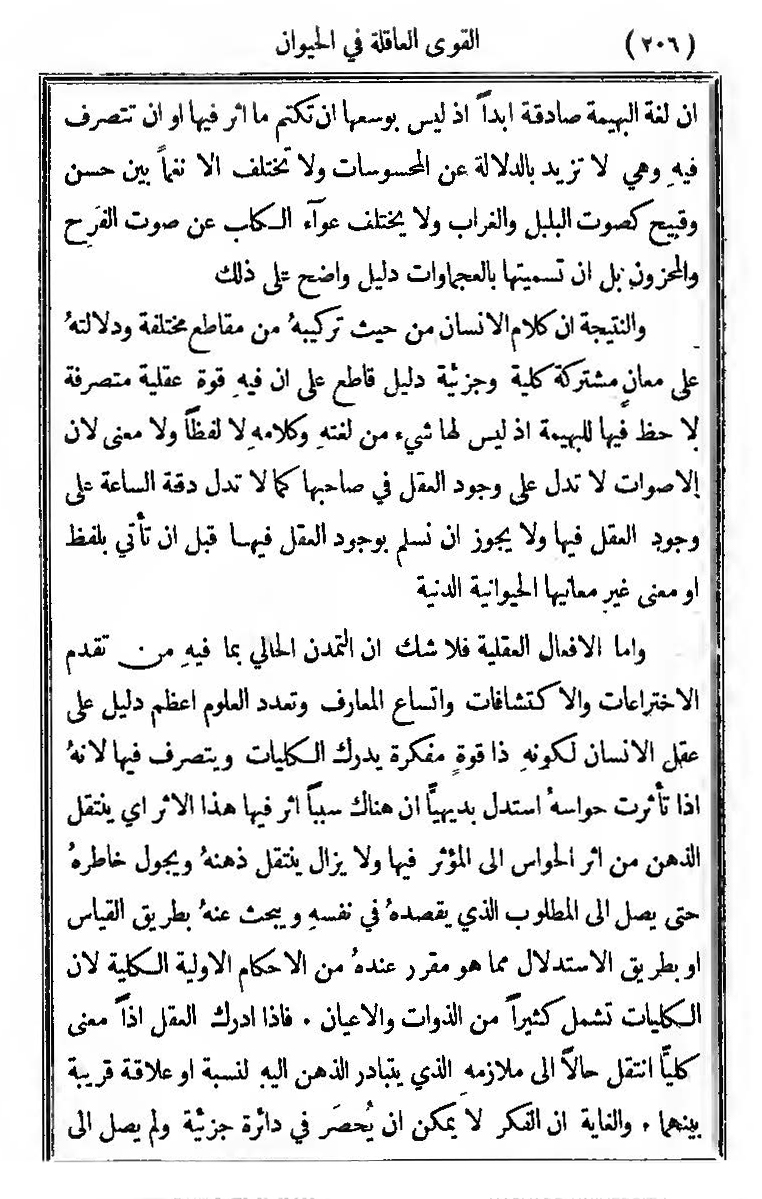 (٢٠٦) القوى العاقلة في الحيوان
ان لغة البهيمة صادقة ابداً اذ ليس بوسعها ان تكتم ما اثر فيها او ان تتصرف
فيهِ وهي لا تزيد بالدلالة عن المحسوسات ولا تختلف الا نغماً بين حسن
وقبيح كصوت البلبل والغراب ولا يختلف عوآء الكلب عن صوت الفَرِح
والمحزون بل ان تسميتها بالعجماوات دليل واضح على ذلك
والنتيجة ان كلام الانسان من حيث تركيبهُ من مقاطع مختلفة ودلالتهُ
على معانٍ مشتركة كلية وجزئية دليل قاطع على ان فيهِ قوة عقلية متصرفة
لا حظ فيها للبهيمة اذ ليس لها شيء من لغتهِ وكلامهِ لا لفظاً ولا معنى لان
الاصوات لا تدل على وجود العقل في صاحبها كما لا تدل دقة الساعة على
وجود العقل فيها ولا يجوز ان نسلم بوجود العقل فيها قبل ان تأتي بلفظ
او معنى غير معانيها الحيوانية الدنية
واما الافعال العقلية فلا شك ان التمدن الحالي بما فيهِ من تقدم
الاختراعات والاكتشافات واتساع المعارف وتعدد العلوم اعظم دليل على
عقل الانسان لكونهِ ذا قوةٍ مفكرة يدرك الكليات ويتصرف فيها لانهُ
اذا تأثرت حواسهُ استدل بديهيًّا ان هناك سبباً اثر فيها هذا الاثر اي ينتقل
الذهن من اثر الحواس الى المؤثر فيها ولا يزال ينتقل ذهنهُ ويجول خاطرهُ
حتى يصل الى المطلوب الذي يقصدهُ في نفسهِ ويبحث عنهُ بطريق القياس
او بطريق الاستدلال مما هو مقرر عندهُ من الاحكام الاولية الكلية لان
الكليات تشمل كثيراً من الذوات والاعيان ٠ فاذا ادرك العقل اذاً معنى
كليًّا انتقل حالاً الى ملازمهِ الذي يتبادر الذهن اليهِ لنسبة او علاقة قريبة
بينهما ٠ والغاية ان الفكر لا يمكن ان يُحصَر في دائرة جزئية ولم يصل الى